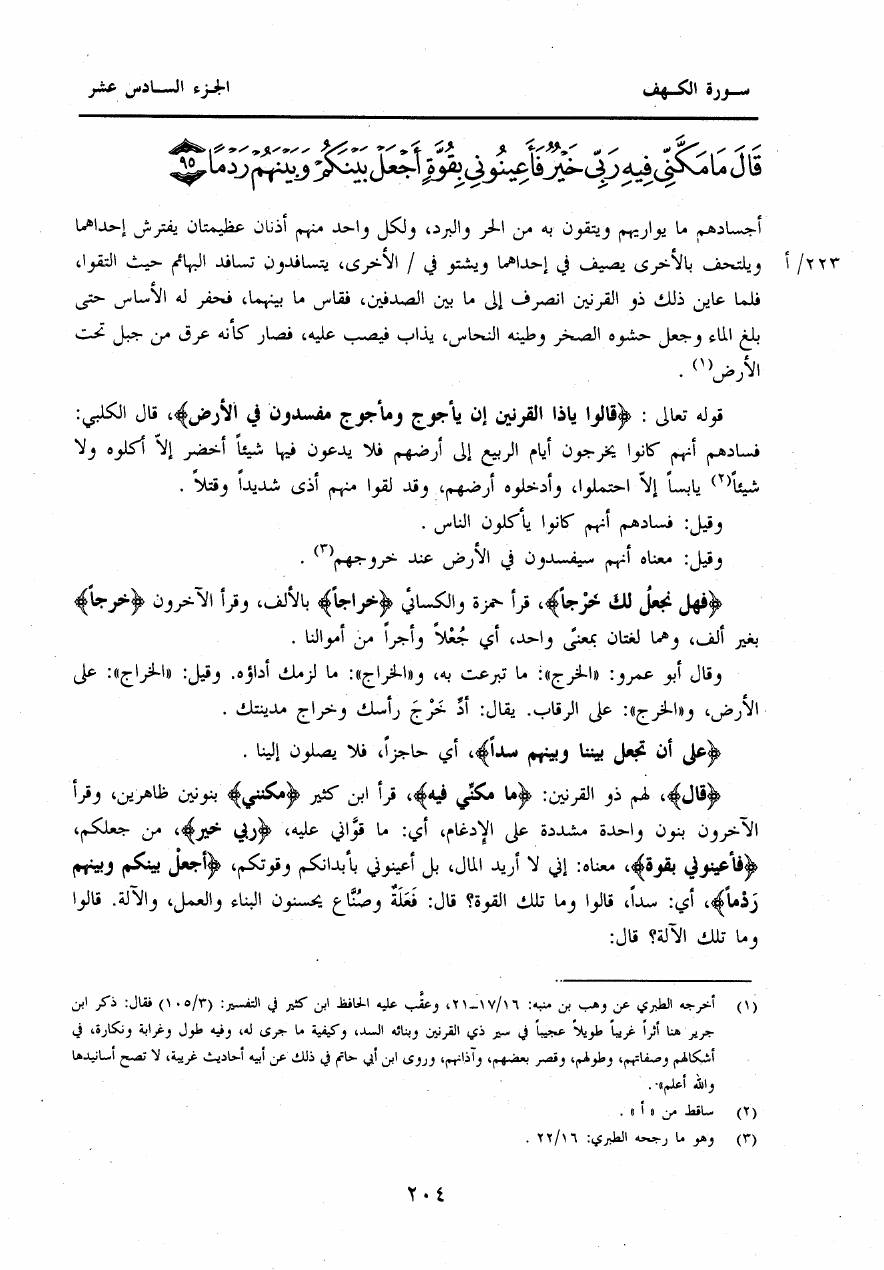 سورة الكهف
الجزء السادس عشر
قَالَ مَا مَكَّنِّي فِيهِ رَبِّي خَيْرٌ فَأَعِينُونِي بِقُوَّةٍ أَجْعَلْ بَيْنَكُمْ وَبَيْنَهُمْ رَدْمًا ٩٥
أجسادهم ما يواريهم ويتقون به من الحر والبرد، ولكل واحد منهم أذنان عظيمتان يفترش إحداهما
٢٢٣/ أ ويلتحف بالأخرى يصيف في إحداهما ويشتو في / الأخرى، يتسافدون تسافد البهائم حيث التقوا،
فلما عاين ذلك ذو القرنين انصرف إلى ما بين الصدفين، فقاس ما بينهما، فحفر له الأساس حتى
بلغ الماء وجعل حشوه الصخر وطينه النحاس، يذاب فيصب عليه، فصار كأنه عرق من جبل تحت
الأرض(١) .
قوله تعالى : ﴿قالوا ياذا القرنين إن يأجوج ومأجوج مفسدون في الأرض﴾، قال الكلبي:
فسادهم أنهم كانوا يخرجون أيام الربيع إلى أرضهم فلا يدعون فيها شيئاً أخضر إلاّ أكلوه ولا
شيئاً(٢) يابساً إلاّ احتملوا، وأدخلوه أرضهم، وقد لقوا منهم أذى شديداً وقتلاً .
وقيل: فسادهم أنهم كانوا يأكلون الناس .
وقيل: معناه أنهم سيفسدون في الأرض عند خروجهم(٣) .
﴿فهل نجعلُ لك خَرْجاً﴾، قرأ حمزة والكسائي ﴿خراجاً﴾ بالألف، وقرأ الآخرون ﴿خرجاً﴾
بغير ألف، وهما لغتان بمعنًى واحد، أي جُعْلاً وأجراً من أموالنا .
وقال أبو عمرو: «الخرج»: ما تبرعت به، و«الخراج»: ما لزمك أداؤه. وقيل: «الخراج»: على
الأرض، و«الخرج»: على الرقاب. يقال: أدِّ خَرْجَ رأسك وخراج مدينتك .
﴿على أن تجعل بيننا وبينهم سداً﴾، أي حاجزاً، فلا يصلون إلينا .
﴿قال﴾، لهم ذو القرنين: ﴿ما مكنِّي فيه﴾، قرأ ابن كثير ﴿مكنني﴾ بنونين ظاهرين، وقرأ
الآخرون بنون واحدة مشددة على الإدغام، أي: ما قوَّاني عليه، ﴿ربي خير﴾، من جعلكم،
﴿فأعينوني بقوة﴾، معناه: إني لا أريد المال، بل أعينوني بأبدانكم وقوتكم، ﴿أجعلْ بينكم وبينهم
رَدْماً﴾، أي: سداً، قالوا وما تلك القوة؟ قال: فَعَلَةٌ وصُنَّاع يحسنون البناء والعمل، والآلة. قالوا
وما تلك الآلة؟ قال:
(١) أخرجه الطبري عن وهب بن منبه: ١٧/١٦ــ٢١، وعقَّب عليه الحافظ ابن كثير في التفسير: (١٠٥/٣) فقال: ذكر ابن
جرير هنا أثراً غريباً طويلاً عجيباً في سير ذي القرنين وبنائه السد، وكيفية ما جرى له، وفيه طول وغرابة ونكارة، في
أشكالهم وصفاتهم، وطولهم، وقصر بعضهم، وآذانهم، وروى ابن أبي حاتم في ذلك عن أبيه أحاديث غريبة، لا تصح أسانيدها
والله أعلم».
(٢) ساقط من « أ » .
(٣) وهو ما رجحه الطبري: ٢٢/١٦ .
٢٠٤